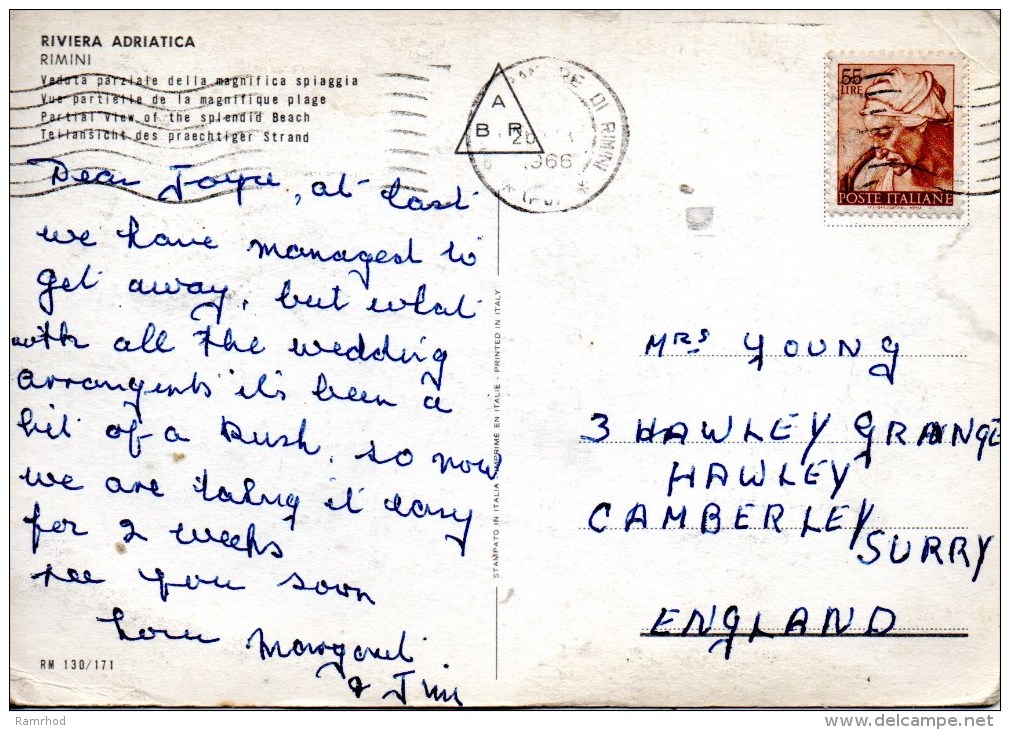 RIVIERA ADRIATICA
RIMINI
Veduta parziale della magnifica spiaggia
Vue partielle de la magnifique plage
Partial View of the splendid Beach
Teilansicht des praechtiger Strand
A
B R
DI RIMINI
1966
55
LIRE
POSTE ITALIANE
Dear Joyce, at last
we have managed to
get away, but what
with all the wedding
arrangents it's been a
bit of a Rush, so now
we are taking it easy
for 2 weeks
see you soon
love Margaret
& Jim
STAMPATO IN ITALIA - IMPRIME EN ITALIE - PRINTED IN ITALY
MRS YOUNG
3 HAWLEY GRANGE
HAWLEY
CAMBERLEY
SURRY
ENGLAND
RM 130/171
Ramrhod
www.delcampe.net